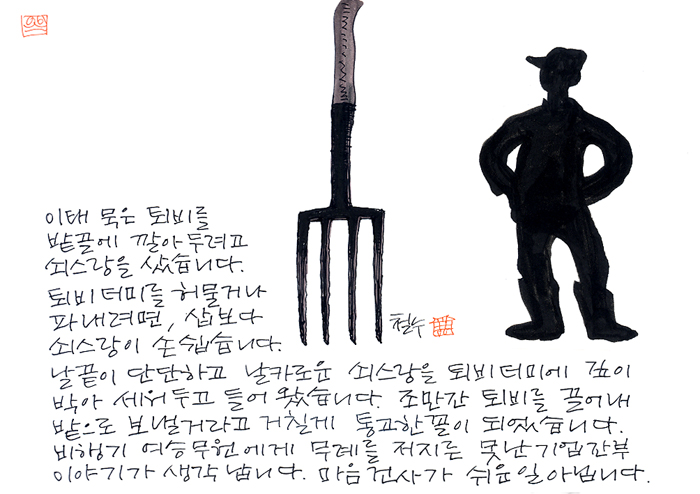 이태 묵은 퇴비를
밭끝에 깔아두려고
쇠스랑을 샀습니다.
퇴비더미를 허물거나
파내려면, 삽보다
쇠스랑이 손쉽습니다.
철수
날끝이 단단하고 날카로운 쇠스랑을 퇴비더미에 깊이
박아 세워두고 들어 왔습니다. 조만간 퇴비를 끌어내
밭으로 보낼거라고 거칠게 통고한꼴이 되었습니다.
비행기 여승무원에게 무례를 저지른 못난기업간부
이야기가 생각납니다. 마음건사가 쉬운일아닙니다.